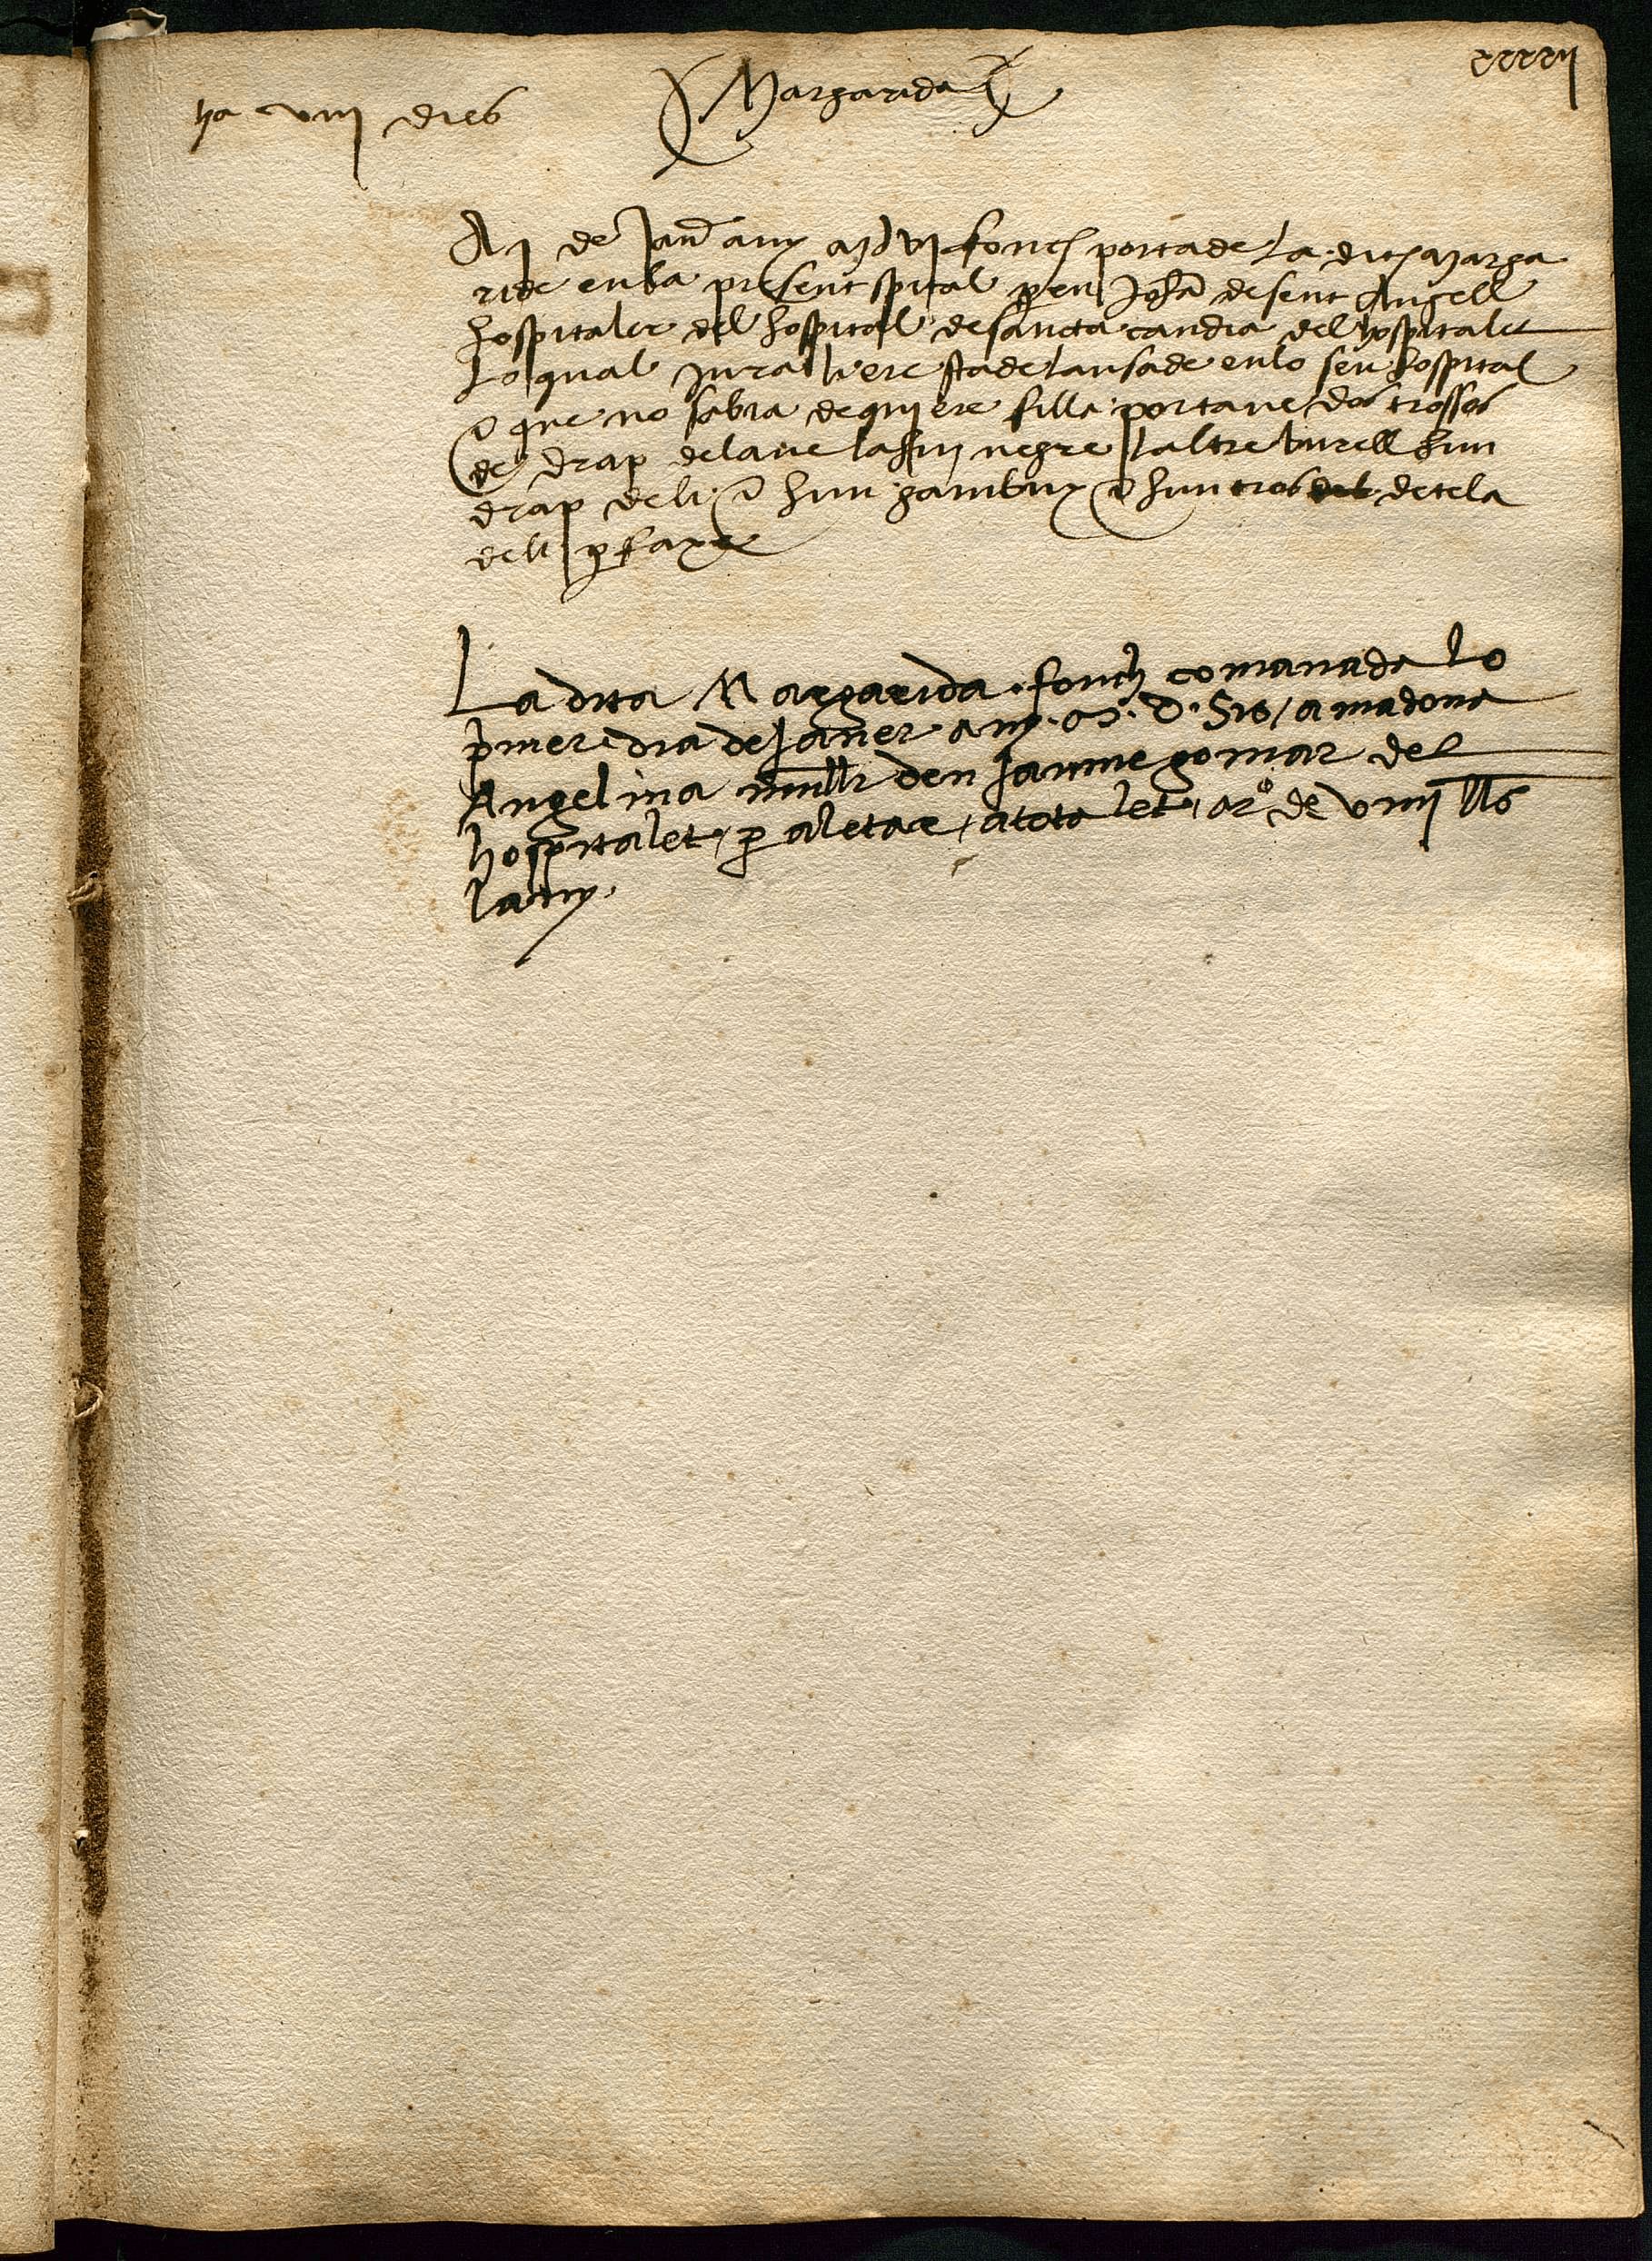 xxxxij
ha viij dies
Margarida
A j de Janer any mdvj fonch portade la dita Marga
ride en la present spital per en Johan de sent Angell
hospitaler del hospital de sancta candia del hospitalet
lo qual jura li ere stade lansade en lo seu hospital
e que no sabia de qui ere filla portave dos trossos
de drap de lane la hu negre laltre burell hun
drap de li e hun gambux e hun tros de tela
de li per faxe
La dita Margarida fonch comanada lo
primer dia de Janer any M D Sis a madona
Angelina muller den Jaume gomar del
hospitalet per aletar a tota let a ro de viiij lls
lany